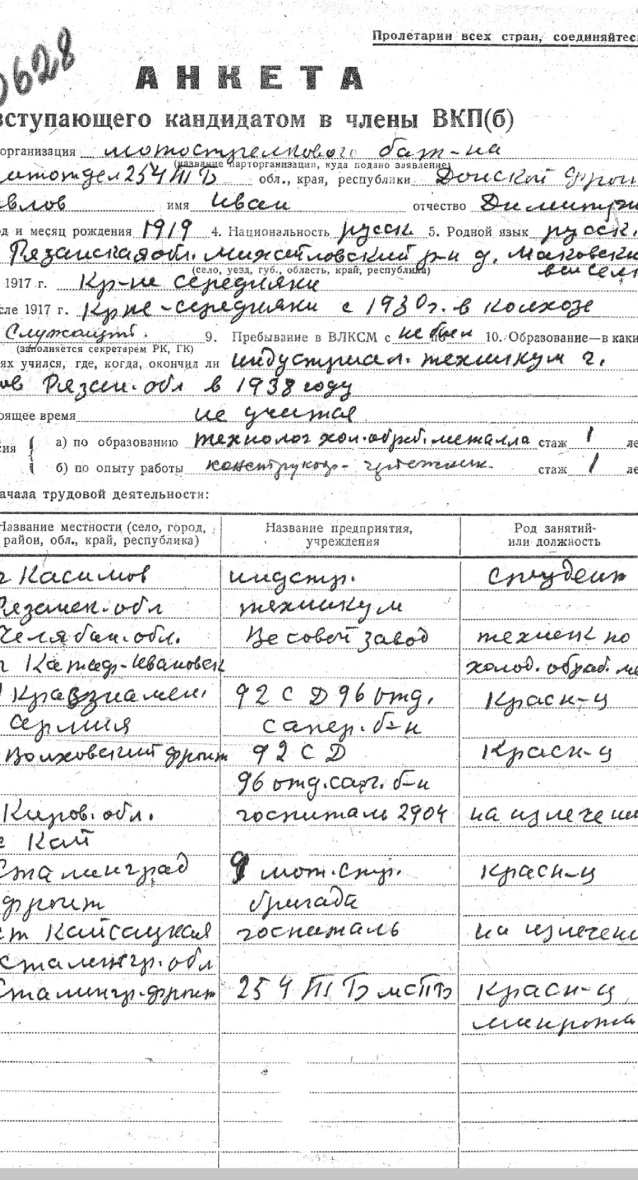 0628
Пролетарии всех стран, соединяйтесь
АНКЕТА
вступающего кандидатом в члены ВКП(б)
организация мотострелкового бат-на
(название парторганизации, куда подано заявление)
254 ТБ обл., края, республики Донской фрон
влов имя Иван отчество Димитри
од и месяц рождения 1919 4. Национальность русск 5. Родной язык русск.
Рязанская обл. Михайловский р-н д. Маковски
(село, уезд, губ., область, край, республика)
1917 г. Кр-не середняки
сле 1917 г. Кр-не-середняки с 1930г. в колхозе
Служащий. 9. Пребывание в ВЛКСМ с не был 10. Образование—в каки
(заполняется секретарем РК, ГК)
ях учился, где, когда, окончил ли индустриал. техникум г.
ов Рязан. обл в 1938 году
оящее время не учится
сия а) по образованию технолог хол. обраб. металла стаж 1 ле
б) по опыту работы конструктор- стаж 1 ле
ачала трудовой деятельности:
Название местности (село, город, район, обл., край, республика) Название предприятия, учреждения Род занятий или должность
г Касимов индстр. студент
Рязанск. обл техникум
Челябин. обл. Весовой завод техник по
г Катав-Ивановск холод. обраб. ме
Краснознамен. 92 СД 96 отд. Красн-ц
Армия сапер. б-н
Волховский фронт 92 СД Красн-ц
96 отд. сап. б-н
Киров. обл. госпиталь 2904 на излечении
с Кай
Сталинград 9 мот. стр. красн-ц
фронт бригада
ст Кайсацкая госпиталь на излечени
сталингр. обл
Сталингр. фронт 254 ТБ мспб Красн-ц
минром